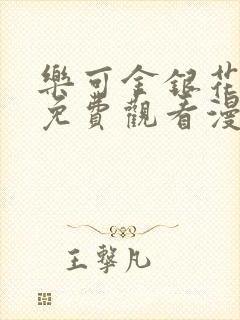 樂可金銀花
免費觀看漫
王擎凡